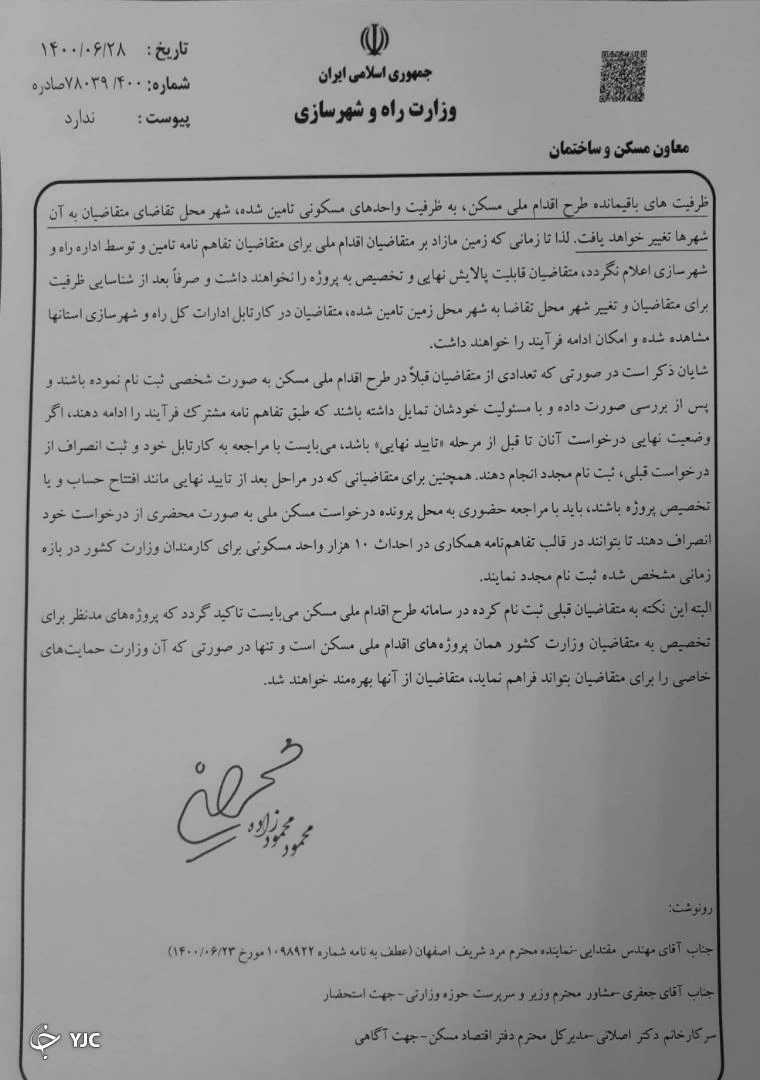 جمهوری اسلامی ایران
وزارت راه و شهرسازی
معاون مسکن و ساختمان
تاریخ : ۱۴۰۰/۰۶/۲۸
شماره: ۷۸۰۳۹/۴۰۰صادره
پیوست : ندارد
ظرفیت های باقیمانده طرح اقدام ملی مسکن، به ظرفیت واحدهای مسکونی تامین شده، شهر محل تقاضای متقاضیان به آن
شهرها تغییر خواهد یافت. لذا تا زمانی که زمین مازاد بر متقاضیان اقدام ملی برای متقاضیان تفاهم نامه تامین و توسط اداره راه و
شهرسازی اعلام نگردد، متقاضیان قابلیت پالایش نهایی و تخصیص به پروژه را نخواهند داشت و صرفاً بعد از شناسایی ظرفیت
برای متقاضیان و تغییر شهر محل تقاضا به شهر محل زمین تامین شده، متقاضیان در کارتابل ادارات کل راه و شهرسازی استانها
مشاهده شده و امکان ادامه فرآیند را خواهند داشت.
شایان ذکر است در صورتی که تعدادی از متقاضیان قبلاً در طرح اقدام ملی مسکن به صورت شخصی ثبت نام نموده باشند و
پس از بررسی صورت داده و با مسئولیت خودشان تمایل داشته باشند که طبق تفاهم نامه مشترك فرآیند را ادامه دهند، اگر
وضعیت نهایی درخواست آنان تا قبل از مرحله «تایید نهایی» باشد، می‌بایست با مراجعه به کارتابل خود و ثبت انصراف از
درخواست قبلی، ثبت نام مجدد انجام دهند. همچنین برای متقاضیانی که در مراحل بعد از تایید نهایی مانند افتتاح حساب و یا
تخصیص پروژه باشند، باید با مراجعه حضوری به محل پرونده درخواست مسکن ملی به صورت محضری از درخواست خود
انصراف دهند تا بتوانند در قالب تفاهم‌نامه همکاری در احداث ۱۰ هزار واحد مسکونی برای کارمندان وزارت کشور در بازه
زمانی مشخص شده ثبت نام مجدد نمایند.
البته این نکته به متقاضیان قبلی ثبت نام کرده در سامانه طرح اقدام ملی مسکن می‌بایست تاکید گردد که پروژه‌های مدنظر برای
تخصیص به متقاضیان وزارت کشور همان پروژه‌های اقدام ملی مسکن است و تنها در صورتی که آن وزارت حمایت‌های
خاصی را برای متقاضیان بتواند فراهم نماید، متقاضیان از آنها بهره‌مند خواهند شد.
محمود محمودزاده
رونوشت:
جناب آقای مهندس مقتدایی -نماینده محترم مرد شریف اصفهان (عطف به نامه شماره ۱۰۹۸۹۲۲ مورخ ۱۴۰۰/۰۶/۲۳)
جناب آقای جعفری -مشاور محترم وزیر و سرپرست حوزه وزارتی -جهت استحضار
سرکارخانم دکتر اصلانی -مدیرکل محترم دفتر اقتصاد مسکن -جهت آگاهی
YJC